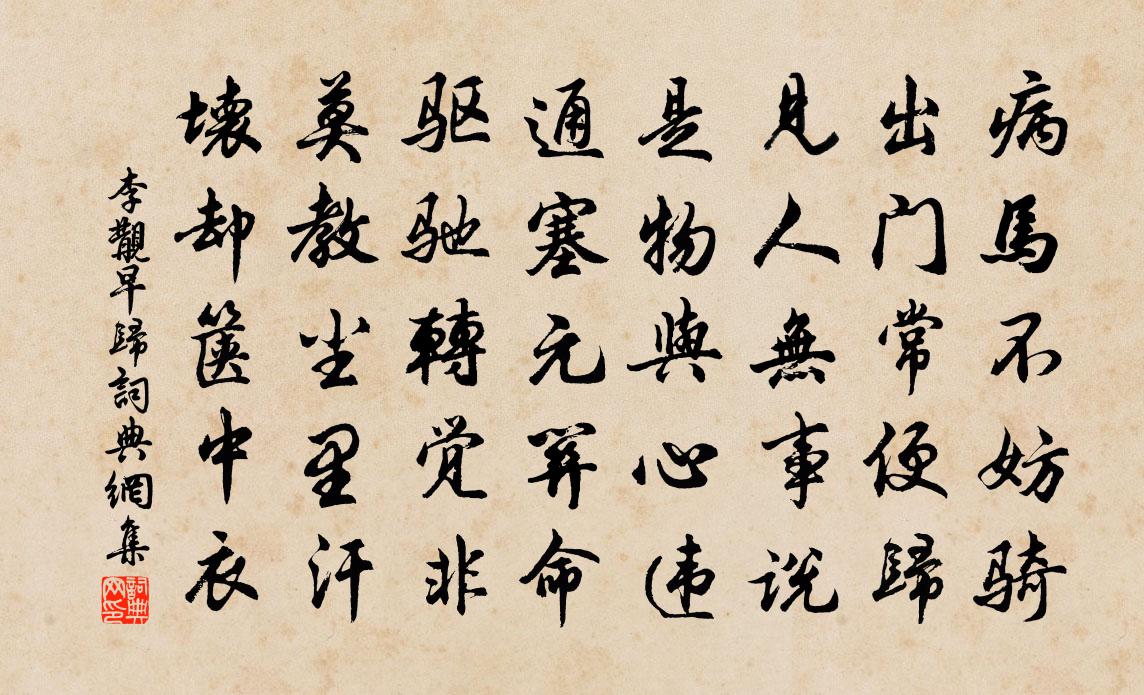 病馬不妨骑
出门常便歸
見人無事説
是物與心违
通塞元算命
驱驰轉觉非
莫教尘里汗
壞却篋中衣
李觀早歸詞典網集
詞典网印